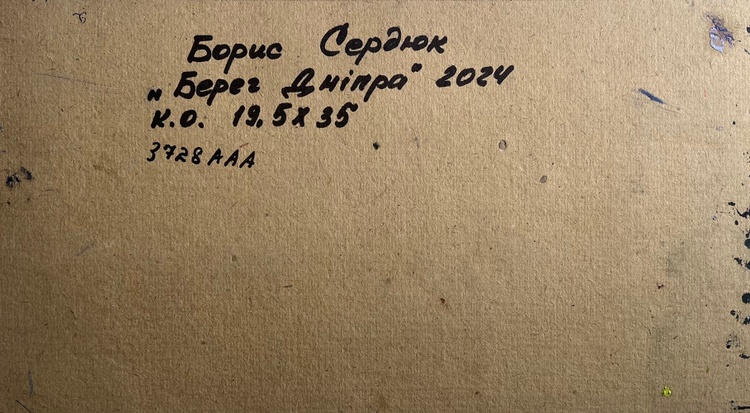 Борис Сердюк
„Берег Дніпра" 2024
к.о. 19,5х35
3728ААА